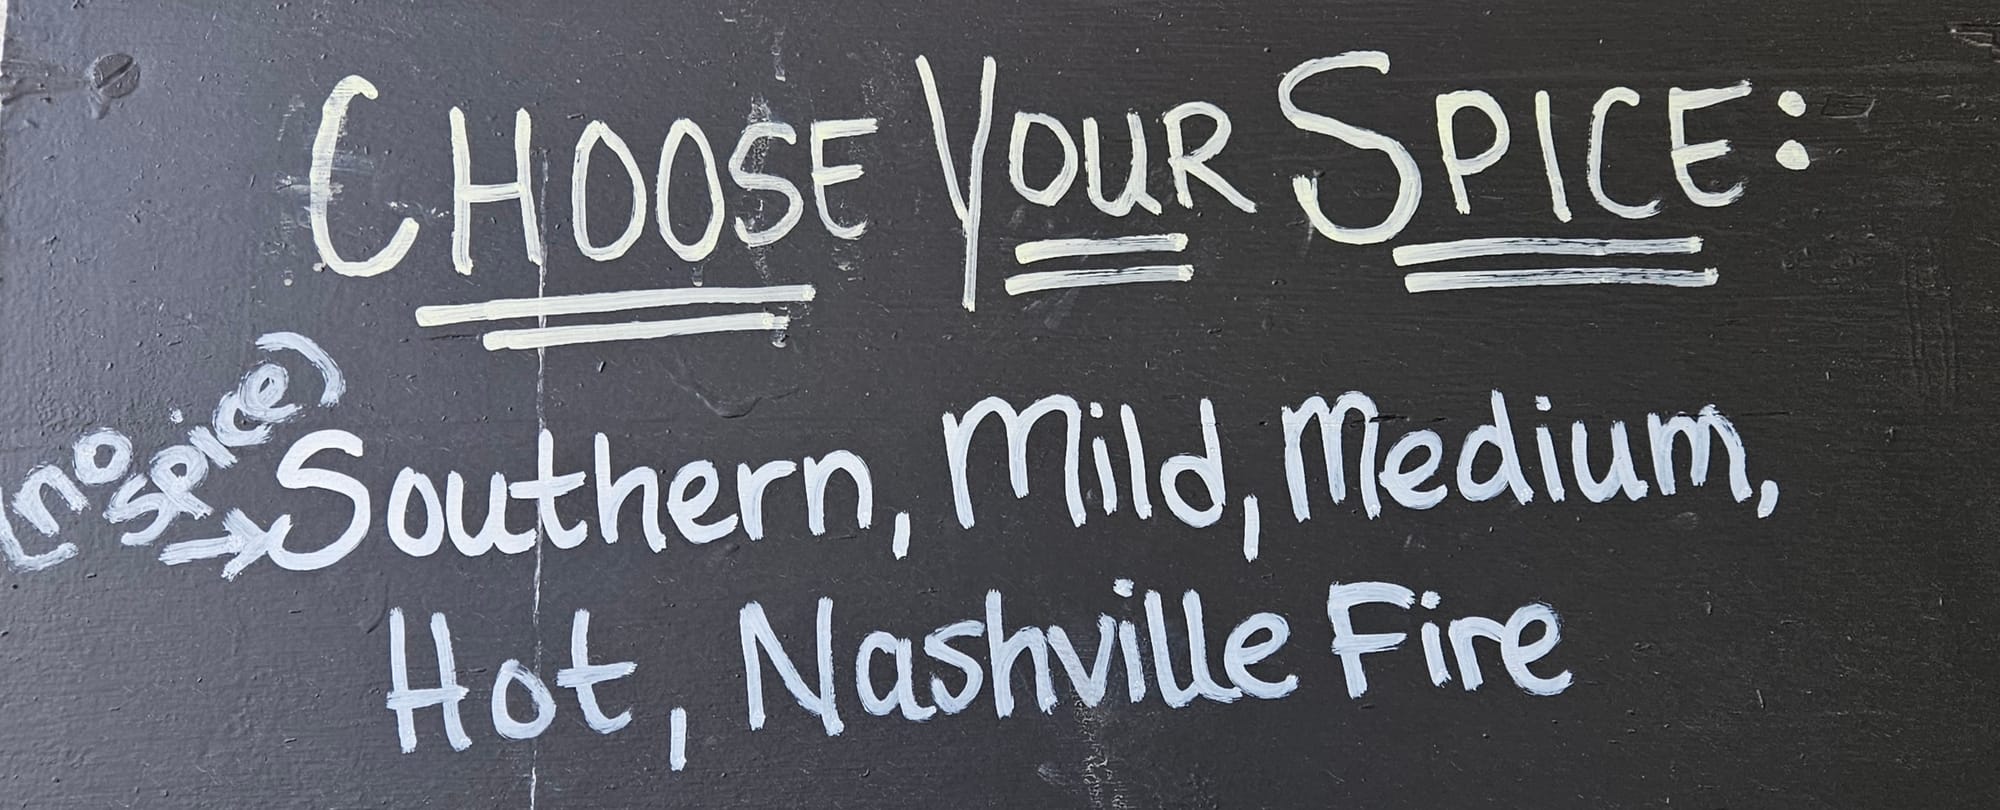 CHOOSE YOUR SPICE:
(no
spice)
→Southern, Mild, Medium,
Hot, Nashville Fire